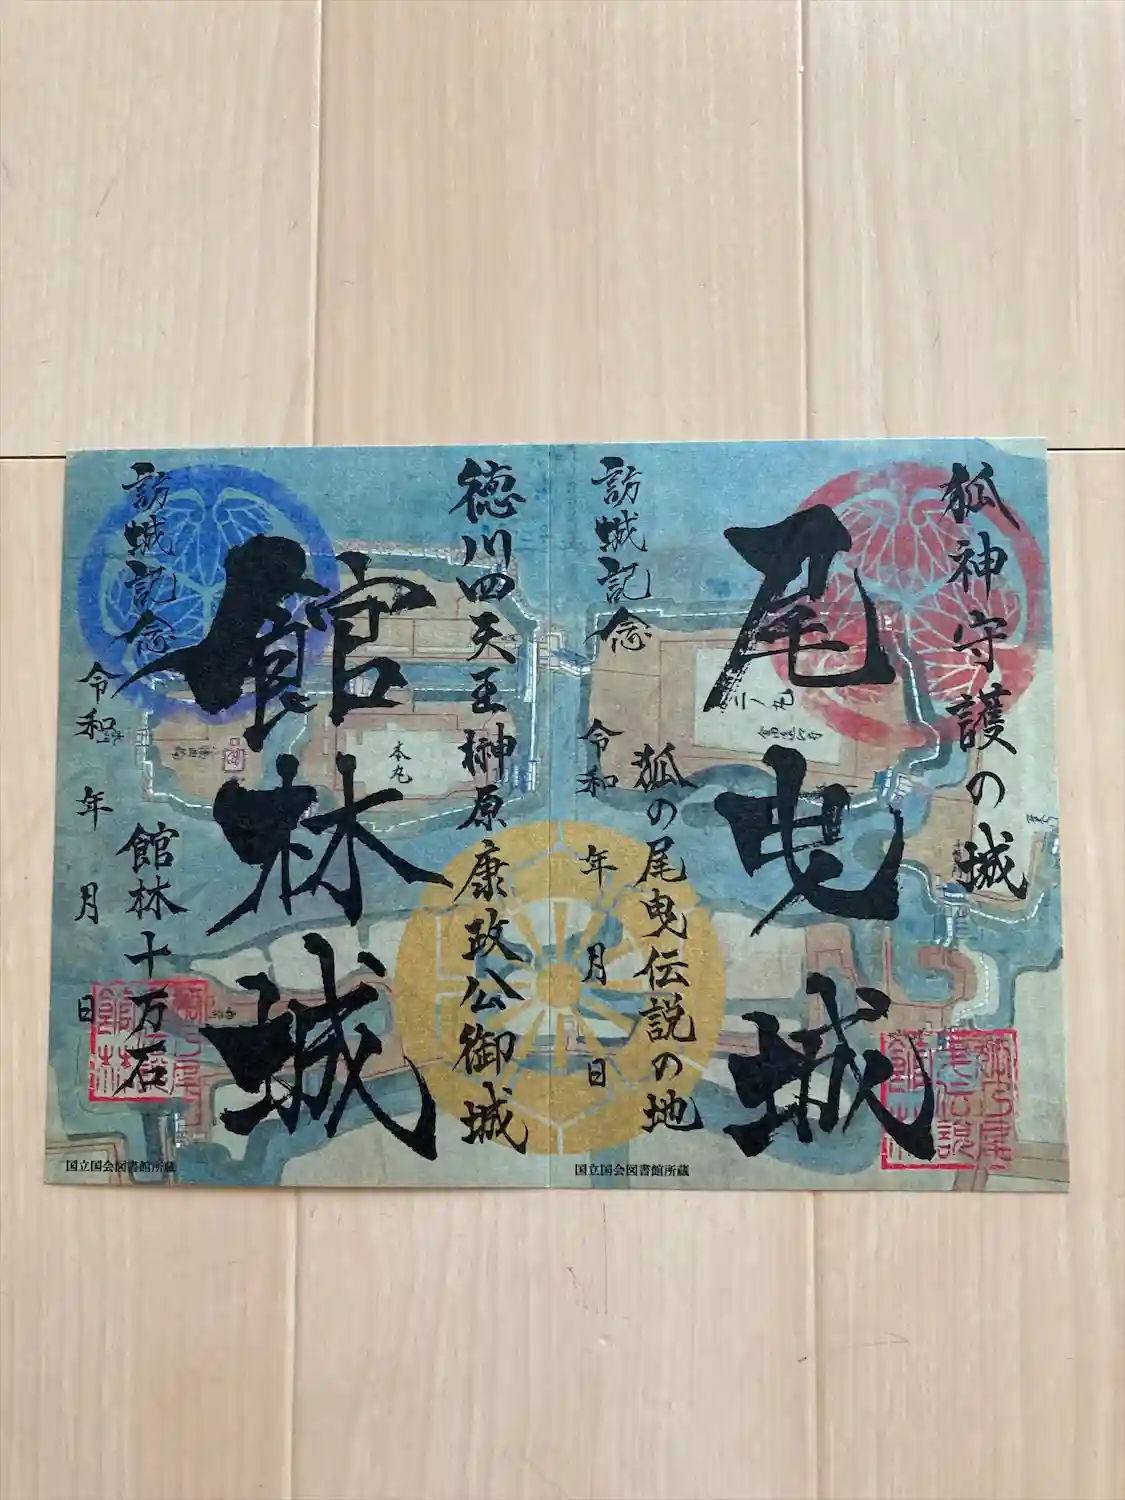 狐神守護の城
尾曳城
狐の尾曳伝説の地
訪城記念
令和 年 月 日
二ノ丸
国立国会図書館所蔵
徳川四天王榊原康政公御城
館林城
本丸
館林十万石
訪城記念
令和 年 月 日
国立国会図書館所蔵